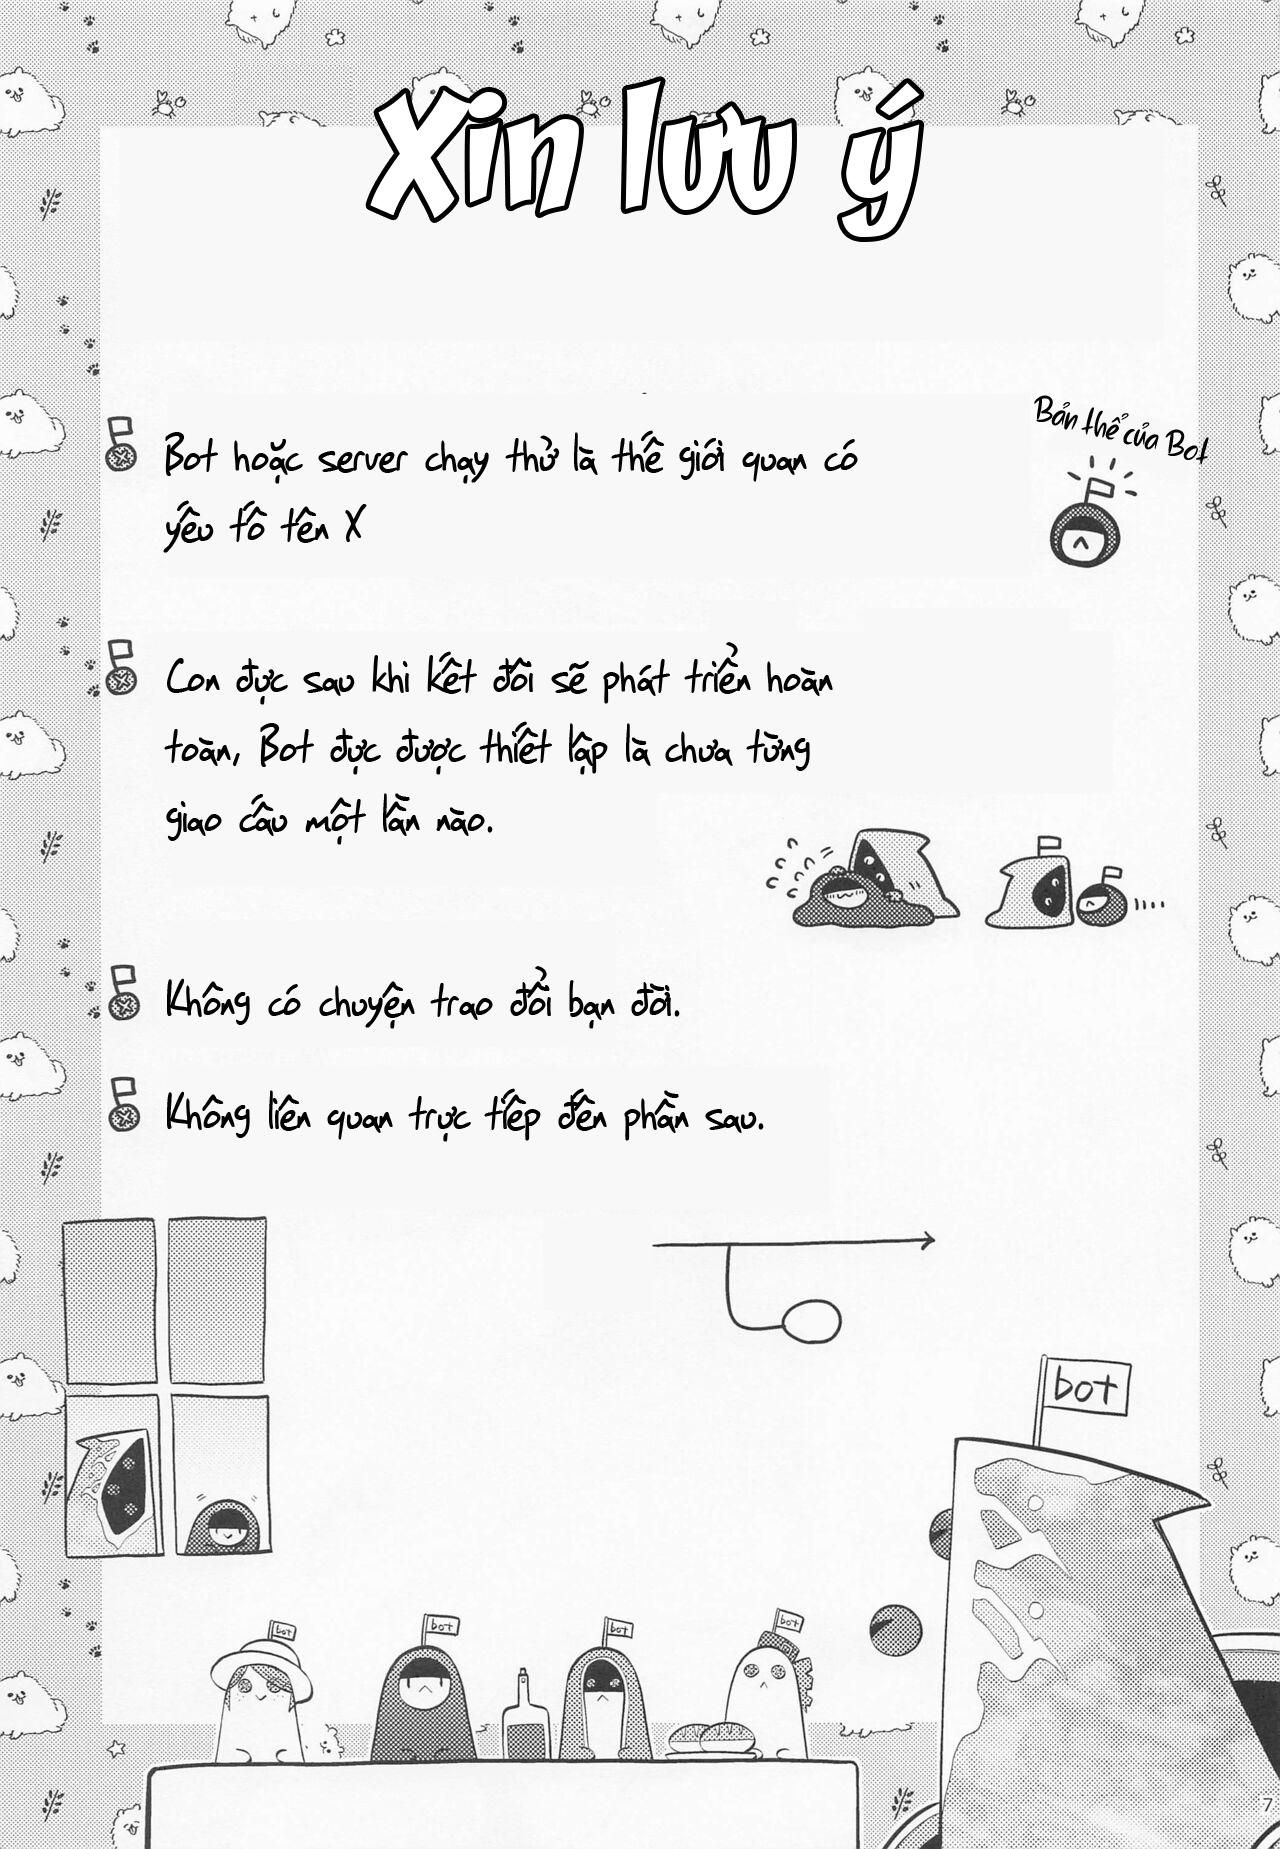 Xin lưu ý
Bản thể của Bot
Bot hoặc server chạy thử là thế giới quan có
yếu tố tên X
Con đực sau khi kết đôi sẽ phát triển hoàn
toàn, Bot đực được thiết lập là chưa từng
giao cấu một lần nào.
Không có chuyện trao đổi bạn đời.
Không liên quan trực tiếp đến phần sau.
bot
bot
bot
bot
bot
7